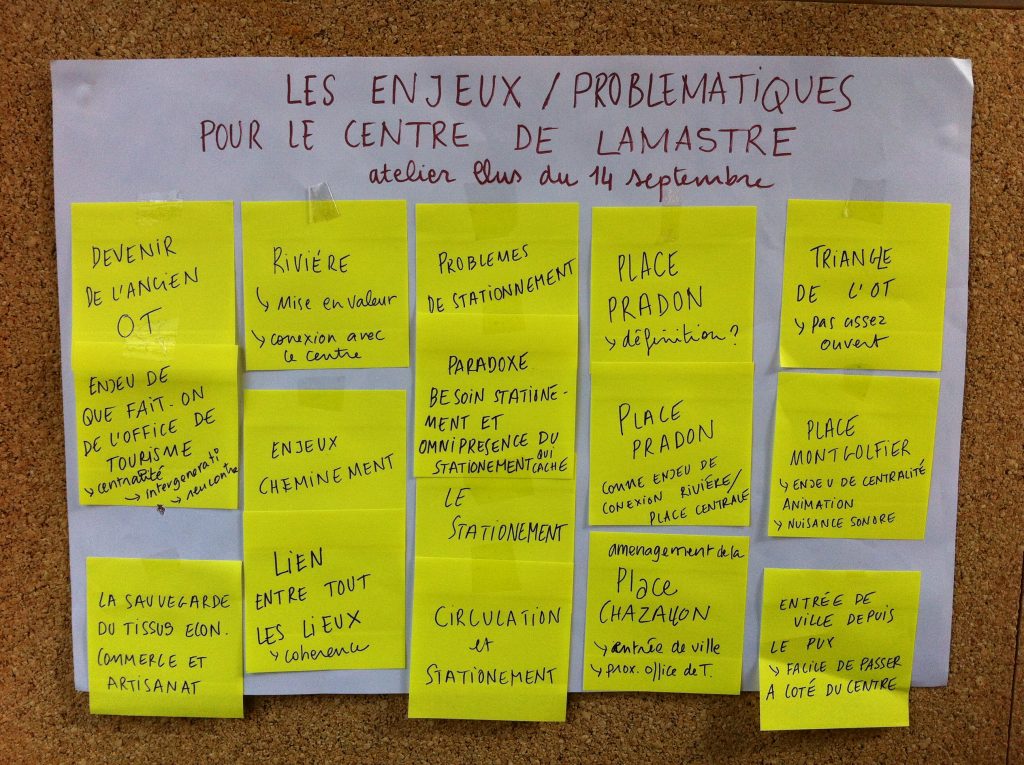 LES ENJEUX / PROBLEMATIQUES
POUR LE CENTRE DE LAMASTRE
atelier Elus du 14 septembre
DEVENIR
DE L'ANCIEN
OT
ENJEU DE
QUE FAIT-ON
DE L'OFFICE DE
TOURISME
↳ centralité
↳ intergenerati
↳ rencontre
LA SAUVEGARDE
DU TISSUS ECON.
COMMERCE ET
ARTISANAT
RIVIÉRE
↳ Mise en valeur
↳ conexion avec
le centre
ENJEUX
CHEMINEMENT
LIEN
ENTRE TOUT
LES LIEUX
↳ coherence
PROBLEMES
DE STATIONNEMENT
PARADOXE
BESOIN STATIONE-
MENT ET
OMNIPRESENCE DU
STATIONEMENT QUI CACHE
LE
STATIONEMENT
CIRCULATION
et
STATIONEMENT
PLACE
PRADON
↳ définition ?
PLACE
PRADON
COMME ENJEU DE
CONEXION RIVIÈRE/
PLACE CENTRALE
amenagement de la
Place
CHAZALLON
↳ entrée de ville
↳ prox. office de T.
TRIANGLE
DE L'OT
↳ pas assez
ouvert
PLACE
MONTGOLFIER
↳ ENJEU DE CENTRALITÉ
ANIMATION
↳ NUISANCE SONORE
ENTRÉE DE
VILLE DEPUIS
LE PUX
↳ FACILE DE PASSER
A COTÉ DU CENTRE